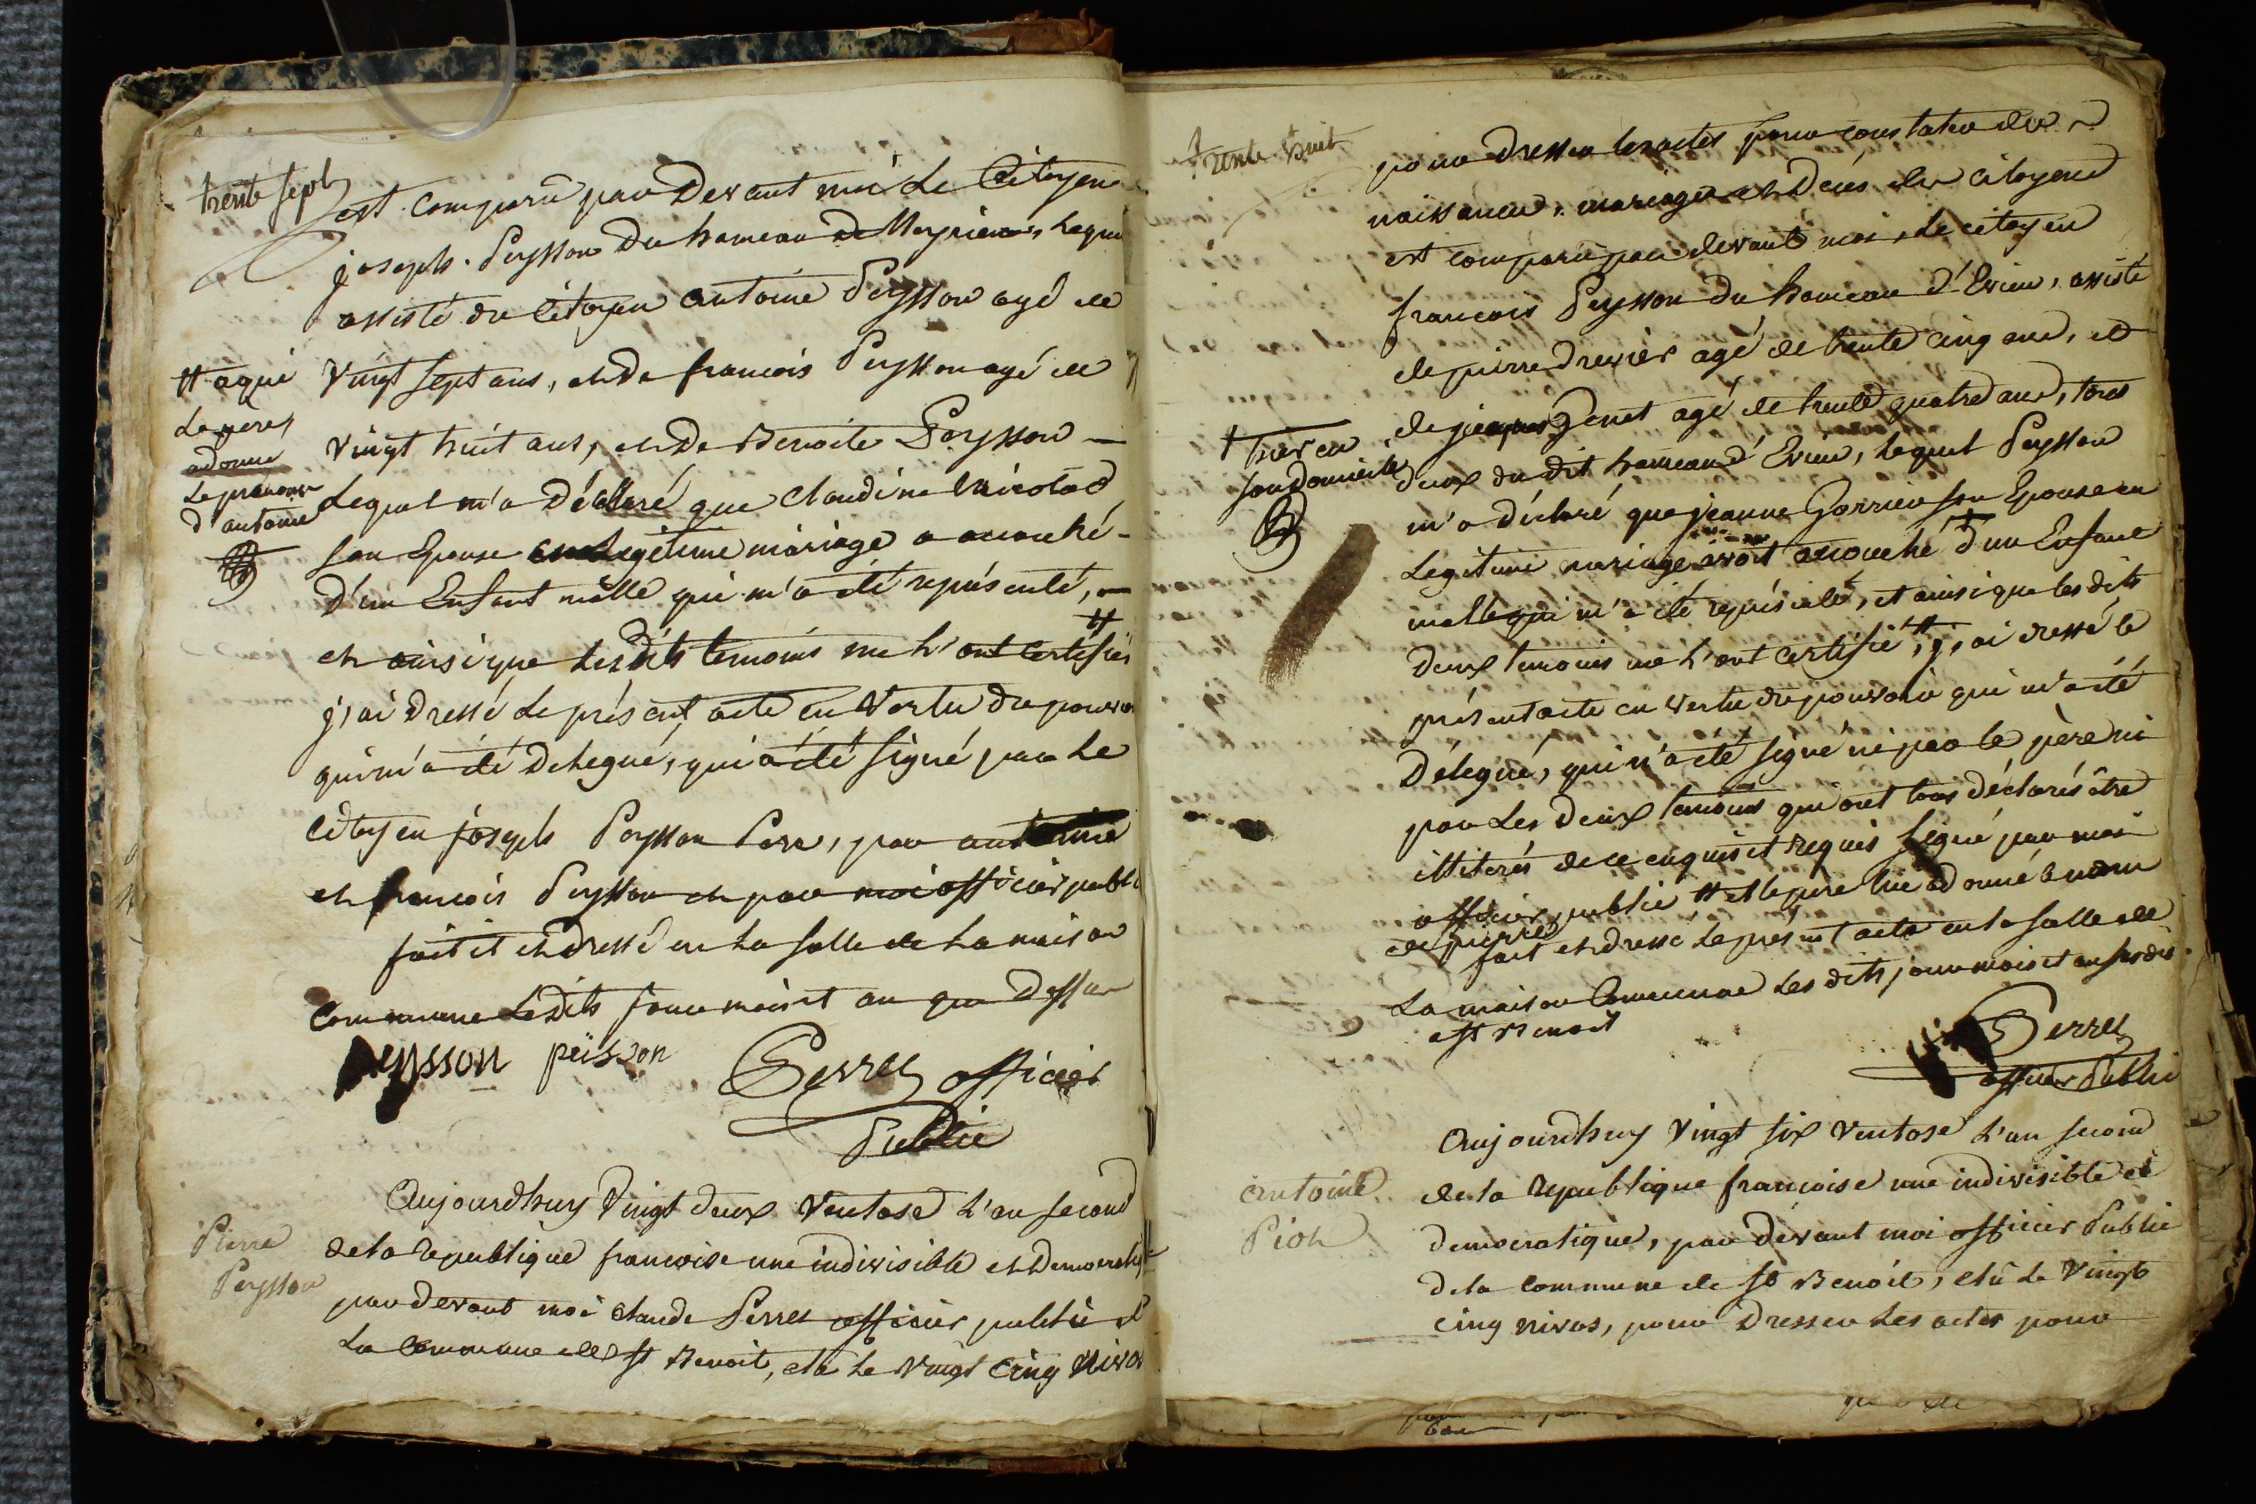 trente sept
est comparu par Devant moi Le Citoyen
joseph Peysson Du hameau de Meyrieu, lequel
assisté du Citoyen antoine Peysson agé de
Vingt sept ans, et De francois Peysson agé de
Vingt huit ans, et De Benoite Peysson
Lequel m'a Déclaré que Claudine Nicolad
Son Epouse en Legitime mariage a accouché
D'un Enfant mâlle qui m'a été représenté,
et ainsi que Lesdits temoins me L'ont certifiés #
j'ai Dressé Le présent acte en Vertu du pouvoir
qui m'a été Delegué, qui a été signé par Le
Citoyen joseph Peysson Pere, par antoine
et francois Peysson et par moi officier public
fait et Dressé en La salle de La maison
Commune Lesdits jour mois et an que Dessus
peysson peïsson Perret officier
Public
# a qui
Le père
a donné
Le prenom
d'antoine
Pierre
Peysson
Aujourdhuy Vingt deux Ventose L'an second
de la République francoise une indivisible et Democratique
par devant moi Claude Perret officier public de
La Commune de St Benoit, elû Le Vingt Cinq Nivos
trente huit
pour dresser les actes pour constater les
naissances, mariages et Décés des citoyens
est comparu par devant moi, Le citoyen
francois Peysson du hameau d'Evieu, assisté
de pierre Drevier agé de trente cinq ans, et
de jacques Genet agé de trente quatre ans, tous
deux du dit hameau d'Evieu, Lequel Peysson
m'a déclaré que jeanne Gorrieu son Epouse en
Légitime mariage avoit accouché † d'un Enfant
malle qui m'a été représenté, et ainsi que lesdits
Deux temoins me L'ont certifié, # j'ai dressé le
présent acte en vertu du pouvoir qui m'a été
Délegué, qui n'a été signé ni par le père ni
par Les Deux temoins qui ont tous déclarés être
illiterés de ce enquis et requis signé par moi
officier public # et le père lui a donné le nom
de pierre
fait et dressé Le présent acte en la salle de
La maison Commune Les dits jour mois et an susdis
St Benoit
Perret
officier Public
† hier en
son domicile
Antoine
Pioh
Aujourdhuy Vingt six Ventose L'an second
de la République francoise une indivisible et
democratique, par dévant moi officier Public
de la commune de St Benoit, elû Le Vingt
cinq nivos, pour Dresser Les actes pour